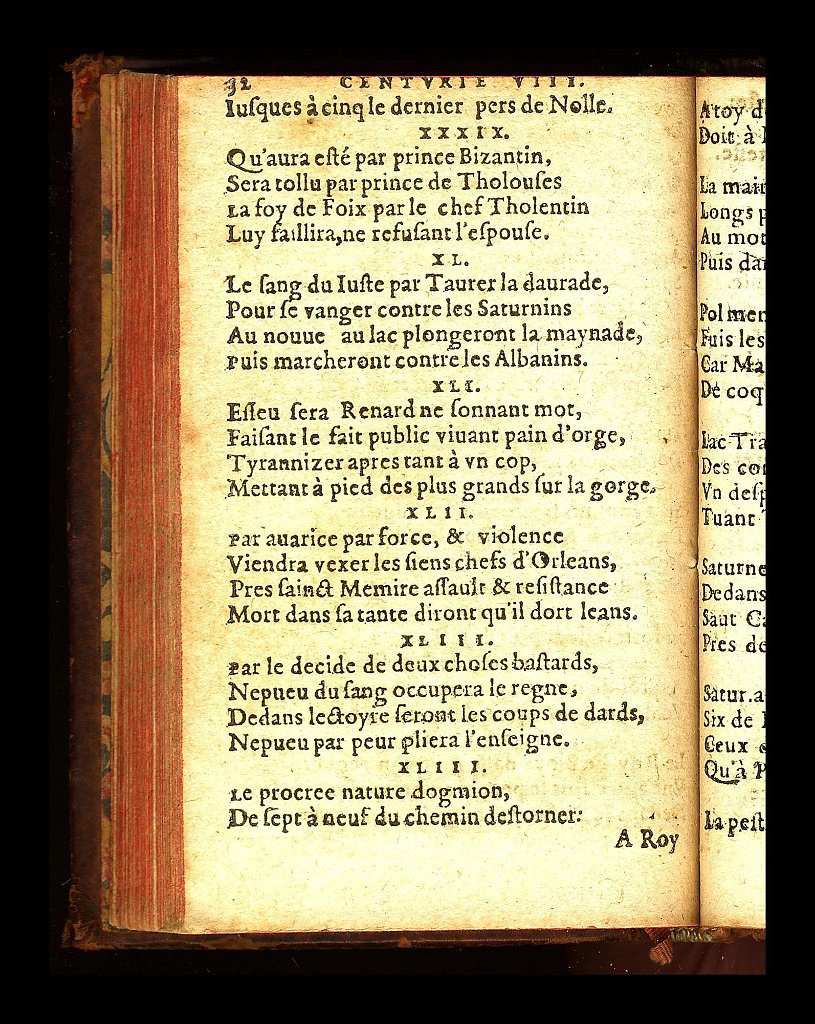 32 CENTVRIE VIII.
Iuſques à cinq le dernier pers de Nolle.
XXXIX.
Qu'aura eſté par prince Bizantin,
Sera tollu par prince de Tholouſes
La foy de Foix par le chef Tholentin
Luy faillira, ne refuſant l'eſpouſe.
XL.
Le ſang du Iuſte par Taurer la daurade,
Pour ſe vanger contre les Saturnins
Au nouue au lac plongeront la maynade,
Puis marcheront contre les Albanins.
XLI.
Eſleu ſera Renard ne ſonnant mot,
Faiſant le fait public viuant pain d'orge,
Tyrannizer apres tant à vn cop,
Mettant à pied des plus grands ſur la gorge.
XLII.
Par auarice par force, & violence
Viendra vexer les ſiens chefs d'Orleans,
Pres ſainct Memire aſſault & reſiſtance
Mort dans ſa tante diront qu'il dort leans.
XLIII.
Par le decide de deux choſes baſtards,
Nepueu du ſang occupera le regne,
Dedans lectoyre ſeront les coups de dards,
Nepueu par peur pliera l'enſeigne.
XLIII.
Le procree nature dogmion,
De ſept à neuf du chemin deſtorner:
A Roy
A toy
Doit à
La
Longs
Au mot
Puis
Pol
Fuis les
Car
De
Lac
Des
Vn
Tuant
Saturne
Dedans
Saut
Pres
Satur.
Six de
Ceux
Qu'à
La